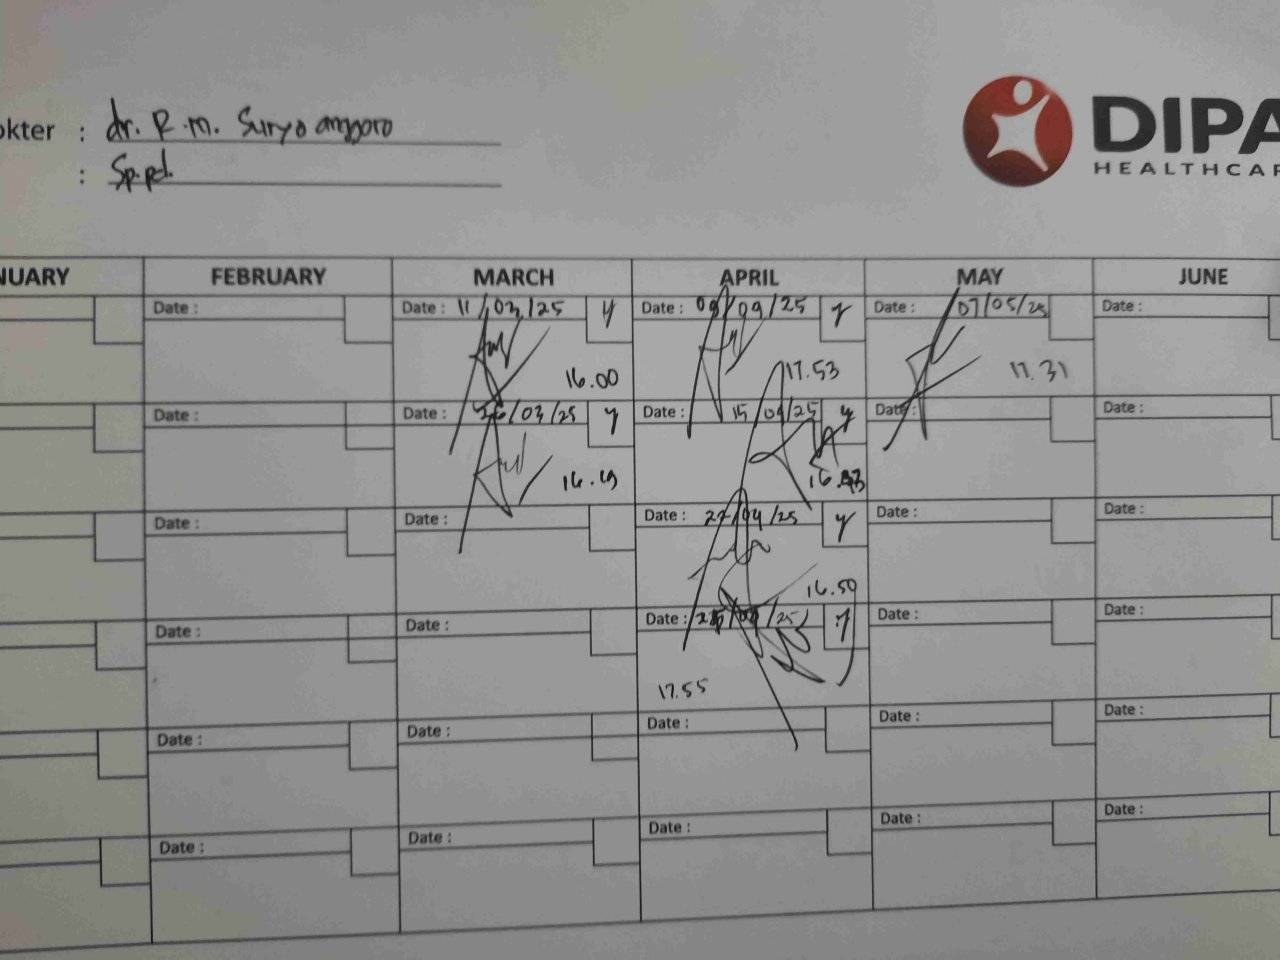 okter : dr. R.m. Suryo anggoro
: Sp.pd.
DIPA
HEALTHCAR
NUARY FEBRUARY MARCH APRIL MAY JUNE
Date : Date : 11/03/25 y Date : 09/09/25 y Date : 07/05/25 Date :
16.00 17.53 17.31
Date : Date : 26/03/25 y Date : 15/04/25 y Date : Date :
16.49
Date : Date : Date : 22/04/25 y Date : Date :
16.50
Date : Date : Date : y Date : Date :
17.55
Date : Date : Date : Date : Date :
Date : Date : Date : Date : Date :